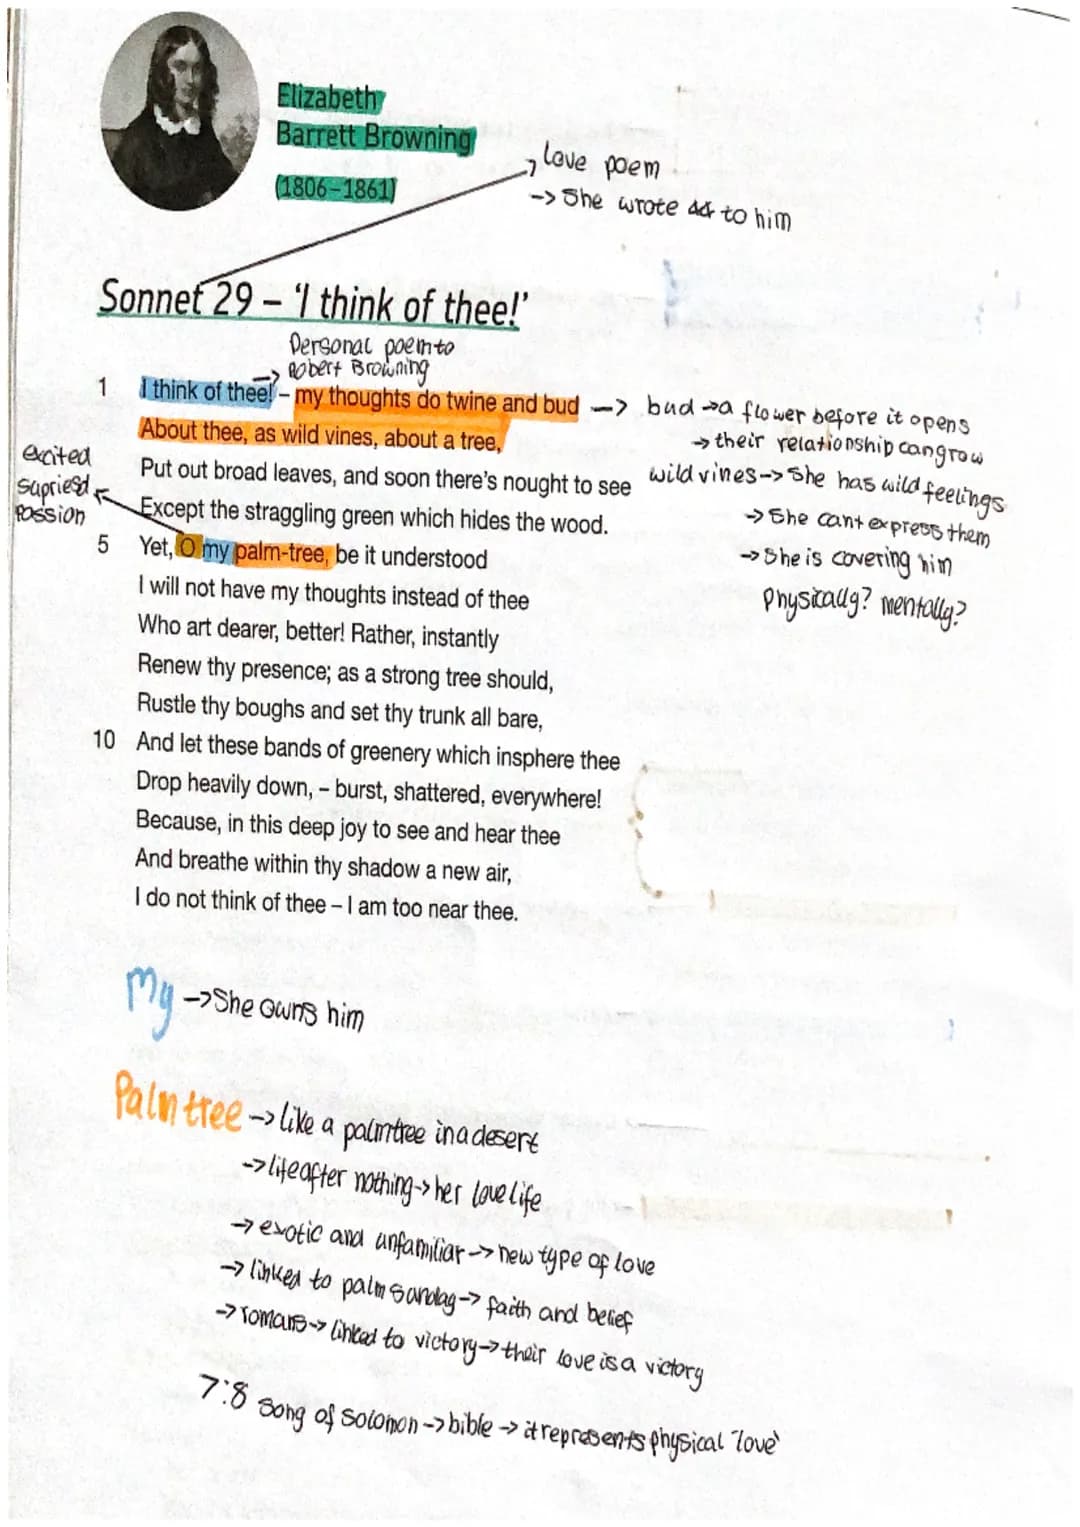 Elizabeth
Barrett Browning
(1806–1861)
love poem
-> She wrote to him
Sonnet 29 – 'I think of thee!'
Personal poem to
-> Robert Browning
1 I think of thee! – my thoughts do twine and bud -> bud -> a flower before it opens
About thee, as wild vines, about a tree,
-> their relationship can grow
excited
supriesd
passion
Put out broad leaves, and soon there's nought to see
wild vines -> She has wild feelings
Except the straggling green which hides the wood.
-> She cant express them
5 Yet, O my palm-tree, be it understood
-> She is covering him
Physically? mentally?
I will not have my thoughts instead of thee
Who art dearer, better! Rather, instantly
Renew thy presence; as a strong tree should,
Rustle thy boughs and set thy trunk all bare,
10 And let these bands of greenery which insphere thee
Drop heavily down, – burst, shattered, everywhere!
Because, in this deep joy to see and hear thee
And breathe within thy shadow a new air,
I do not think of thee – I am too near thee.
My -> She owns him
Palm tree -> like a palmtree in a desert
-> life after nothing -> her love life
-> exotic and unfamiliar -> new type of love
-> linked to palm sunday -> faith and belief
-> romans -> linked to victory -> their love is a victory
7:8 song of solomon -> bible -> it represents physical "love"